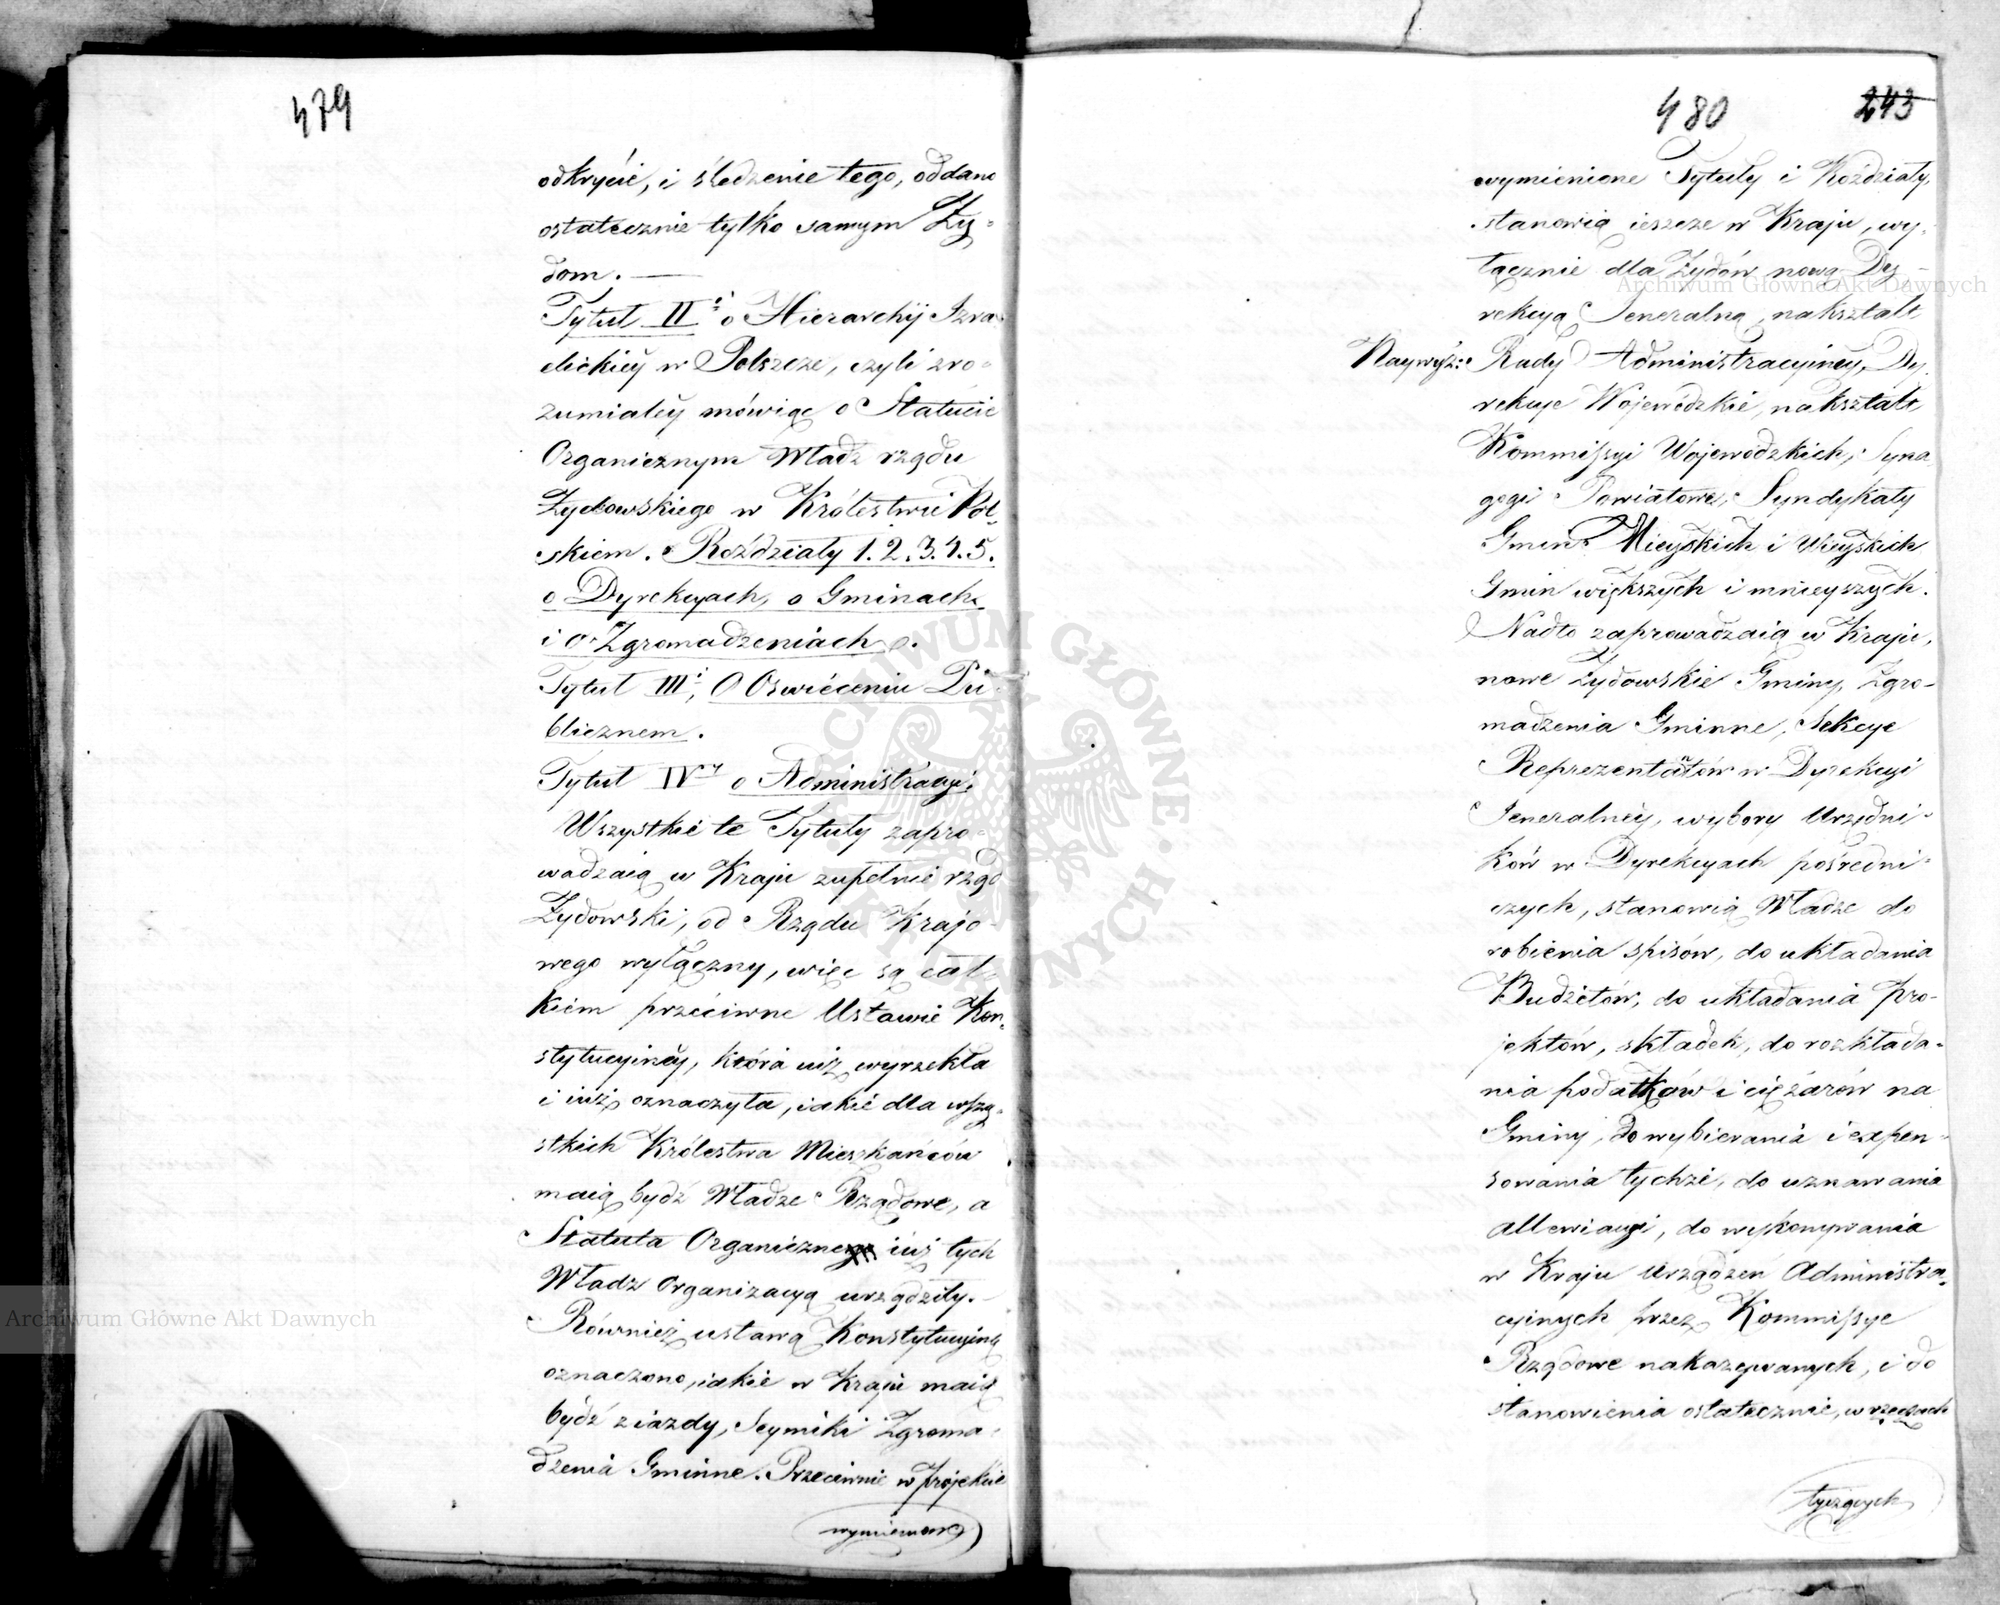 479
odkrycie, i śledzenie tego, oddano
ostatecznie tylko samym Ży-
dom. —
Tytuł II i o Hierarchij Izra-
elickiey w Polszcze, czyli zro-
zumialey mówiąc o Statucie
Organicznym Władz rządu
Żydowskiego w Królestwie Pol-
skiem. Roździały 1. 2. 3. 4. 5.
o Dyrekcyach, o Gminach
i o Zgromadzeniach.
Tytuł III i, O Oswiéceniu Pu-
blicznem.
Tytuł IV y o Administracyi.
Wszystkie te Tytuły zapro-
wadzaią w Kraju zupełnie rząd
Żydowski, od Rządu Krajo-
wego wyłączny, więc są cał-
kiem przeciwne Ustawie Kon-
stytucyiney, która iuż wyrzekła
i iuż oznaczyła, iakie dla wszy-
stkich Królestwa Mieszkańców
maią bydź Władze Rządowe, a
Statuta Organiczne iuż tych
Władz Organizacyą urządziły. —
Również ustawą Konstytucyiną
oznaczono, iakie w Kraju maią
bydź ziazdy, Seymiki Zgroma-
dzenia Gminne. Przeciwnie w projekcie
wymienione
480
243
wymienione Tytuły i Roździały,
stanowią ieszcze w Kraju, wy-
łącznie dla Żydów nową Dy-
rekcyą Jeneralną, nakształt
Naywyż: Rady Administracyiney, Dy-
rekcye Wojewódzkie, nakształt
Kommissyi Wojewodzkich, Syna-
gogi Powiatowe, Syndykaty
Gmin Mieyskich i Wieyskich
Gmin większych i mnieyszych.
Nadto zaprowadzaią w Kraju,
nowe Żydowskie Gminy, Zgro-
madzenia Gminne, Sekcye
Reprezentantów w Dyrekcyi
Jeneralney, wybory Urzędni-
ków w Dyrekcyach pośredni-
czych, stanowią Władze do
robienia spisów, do układania
Budżetów, do układania pro-
jektów, składek, do rozkłada-
nia podatków i ciężarów na
Gminy, do wybierania i expen-
sowania tychże, do uznawania
allewiacyi, do wykonywania
w Kraju Urządzeń Administra-
cyinych przez Kommissye
Rządowe nakazywanych, i do
stanowienia ostatecznie, w rzeczach
tyczących
Archiwum Główne Akt Dawnych
Archiwum Główne Akt Dawnych
ARCHIWUM GŁÓWNE AKT DAWNYCH